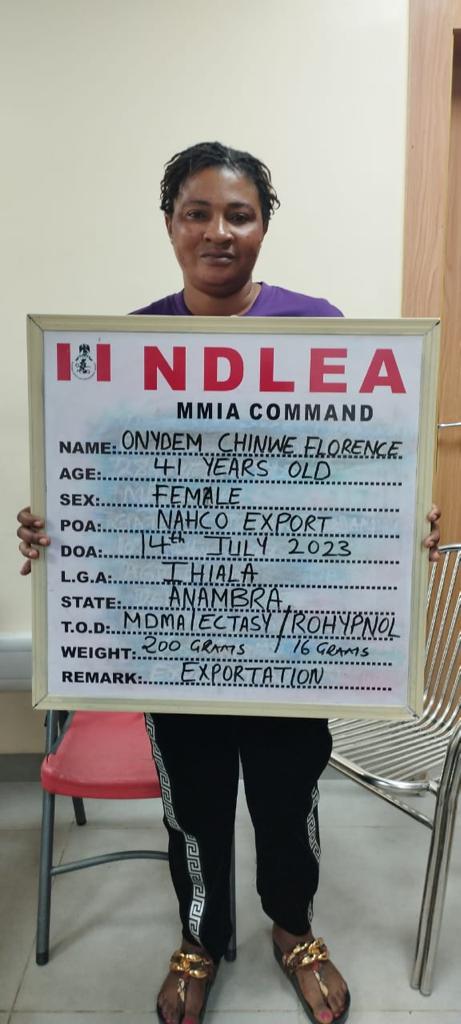 NDLEA
MMIA COMMAND
NAME: ONYDEM CHINWE FLORENCE
AGE: 41 YEARS OLD
SEX: FEMALE
POA: NAHCO EXPORT
DOA: 14th JULY 2023
L.G.A: IHIALA
STATE: ANAMBRA
T.O.D: MDMA/ECTASY/ROHYPNOL
WEIGHT: 200 GRAMS / 16 GRAMS
REMARK: EXPORTATION